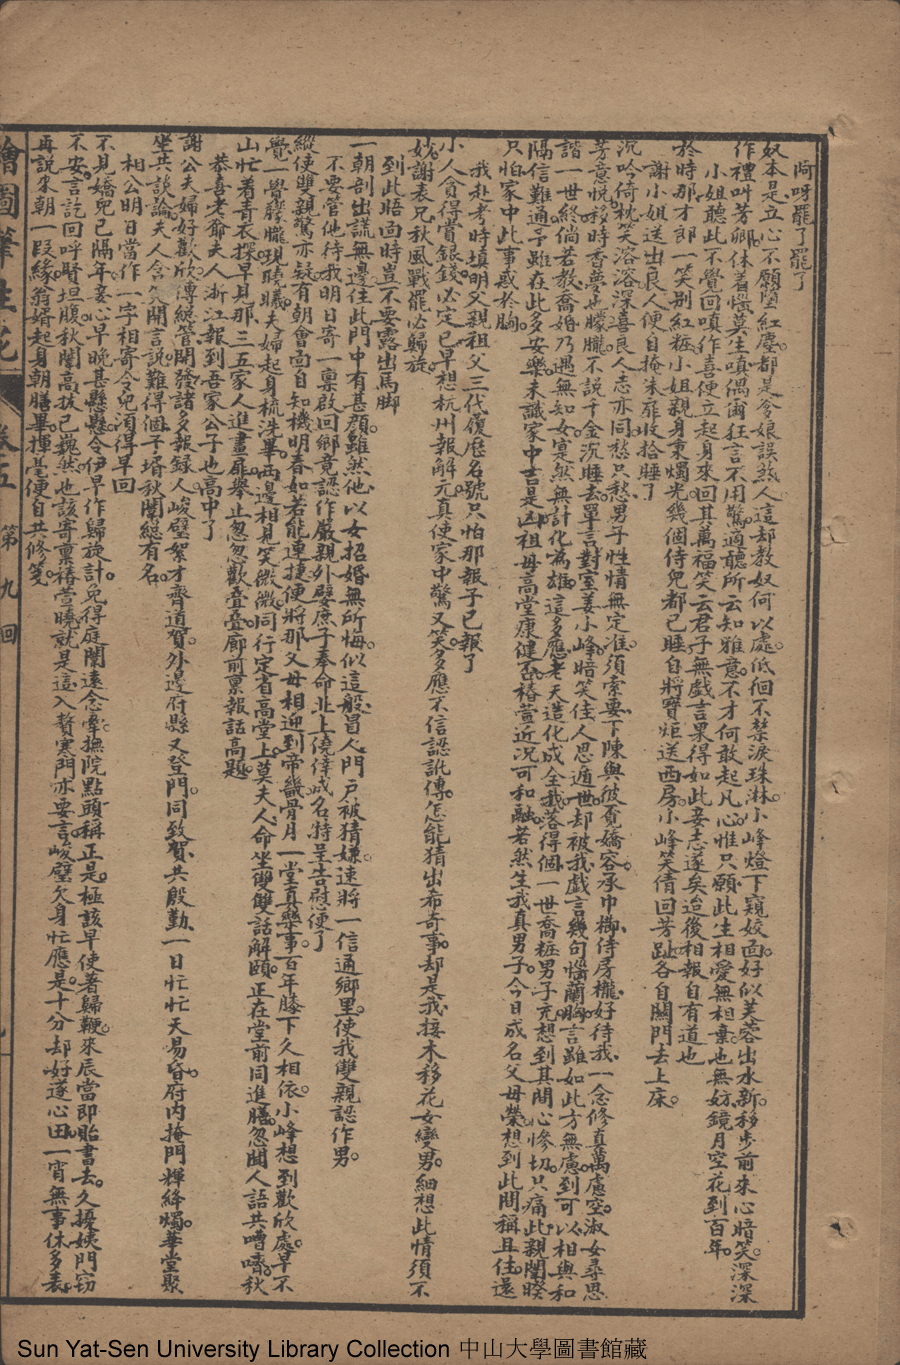 阿呀罷了罷了
奴本是立心不願墮紅塵。都是爹娘誤煞人。這却教奴何以處。低徊不禁淚珠淋。小峰燈下窺姣面。好似芙蓉出水新。移步前來心暗笑。深深
作禮叫芳卿。休着惱。莫生嗔。偶爾狂言不用驚。適聽所云知雅意。不才何敢起凡心。惟只願。此生相愛無相棄。也無妨。鏡月空花到百年。
小姐聽此不覺回嗔作喜便立起身來。回其萬福笑云君子無戲言果得如此妾志遂矣迨後相報自有道也
於時那才郎一笑別紅粧。小姐親身秉燭光。幾個侍兒都已睡。自將寶炬送西房。小峰笑倩回芳趾。各自關門去上床。
謝小姐送出良人便自掩朱扉收拾睡了
沉吟倚枕笑溶溶。深喜良人志亦同。愁只愁。男子性情無定准。須索要。下陳與彼覔嬌容。承巾櫛。侍房櫳。好待我。一念修真萬慮空。淑女尋思
芳意悅。移時香夢正朦朧。不說千金沉睡去。單言對室姜小峰。暗笑佳人思遁世。却被我。戲言幾句惱蘭胸。言雖如此方無慮。到可以。相與和
諧一世終。倘若教。喬婚乃遇無知女。寔然無計化為雄。這多應。老天造化成全我。落得個。一世喬粧男子充。想到其間心慘切。只痛此。親闈暌
隔信難通。予雖在此多安樂。未識家中吉是凶。祖母高堂康健否。椿萱近況可和融。若然生我真男子。今日成名父母榮。想到此間稱且住。還
只怕家中此事惑於胸。
我赴考時填明父親祖父三代履歷名號只怕那報子已報了
小人貪得賞銀錢。必定已早想杭州報解元。真使家中驚又笑。多應不信認訛傳。怎能猜出希奇事。却是我。接木移花女變男。細想此情須不
妙。謝表兄。秋風戰罷必歸旋。
到此晤面時豈不要露出馬脚
一朝剖出謊無邊。住此門中有甚顏。雖然他。以女招婚無所悔。似這般。冒人門戶被猜嫌。速將一信通鄉里。使我雙親認作男。
不要管他待我明日寄一稟啟回鄉竟認作嚴親外嬖庶子奉命北上僥倖成名特呈告慰便了
縱使雙親驚亦疑。有朝會面自知機。明春如若能連捷。便將那。父母相迎到帝畿。骨月一堂真樂事。百年膝下久相依。小峰想到歡欣處。早不
覺。一學朦朧現曉曦。夫婦起身梳洗畢。兩邊相見笑微微。同行定省高堂上。莫夫人。命坐雙雙話解頤。正在堂前同進膳。忽聞人語共嘈嘈。秋
山忙着青衣探。早見那。三五家人進畫扉。舉止忽忽歡叠叠。廊前稟報話高題。
恭喜老爺夫人浙江報到吾家公子也高中了
謝公夫婦好歡欣。傳總管。開發諸多報錄人。峻璧絮才齊道賀。外邊府縣又登門。同致賀。共殷勤。一日忙忙天易昏。府內掩門輝絳燭。華堂聚
坐共談論。夫人含笑聞言說。難得個。子壻秋闈總有名。
相公明日當作一字相寄令兒須得早回
不見嬌兒已隔年。妾心早晚甚懸懸。令伊早作歸旋計。免得庭闈遠念牽。撫院點頭稱正是。極該早使著歸鞭。來辰當即貽書去。久擾姨門窃
不安。言訖回呼賢坦腹。秋闈高拔已巍然。也該寄稟椿萱曉。就是這。入贅寒門亦要言。峻璧欠身忙應是。十分却好遂心田。一宵無事休多表。
再說來朝一段緣。翁婿起身朝膳畢。揮毫便自共修箋。
繪圖筆生花 卷五 第九回
Sun Yat-Sen University Library Collection 中山大學圖書館藏